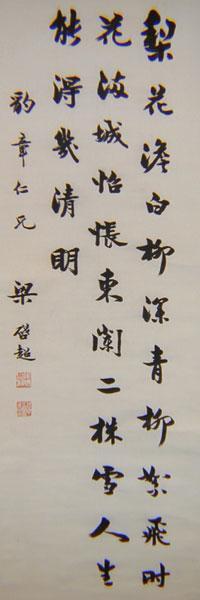 梨花澹白柳深青柳絮飛时
花滿城怊悵東闌二株雪人生
能得幾清明
豹章仁兄 梁啓超